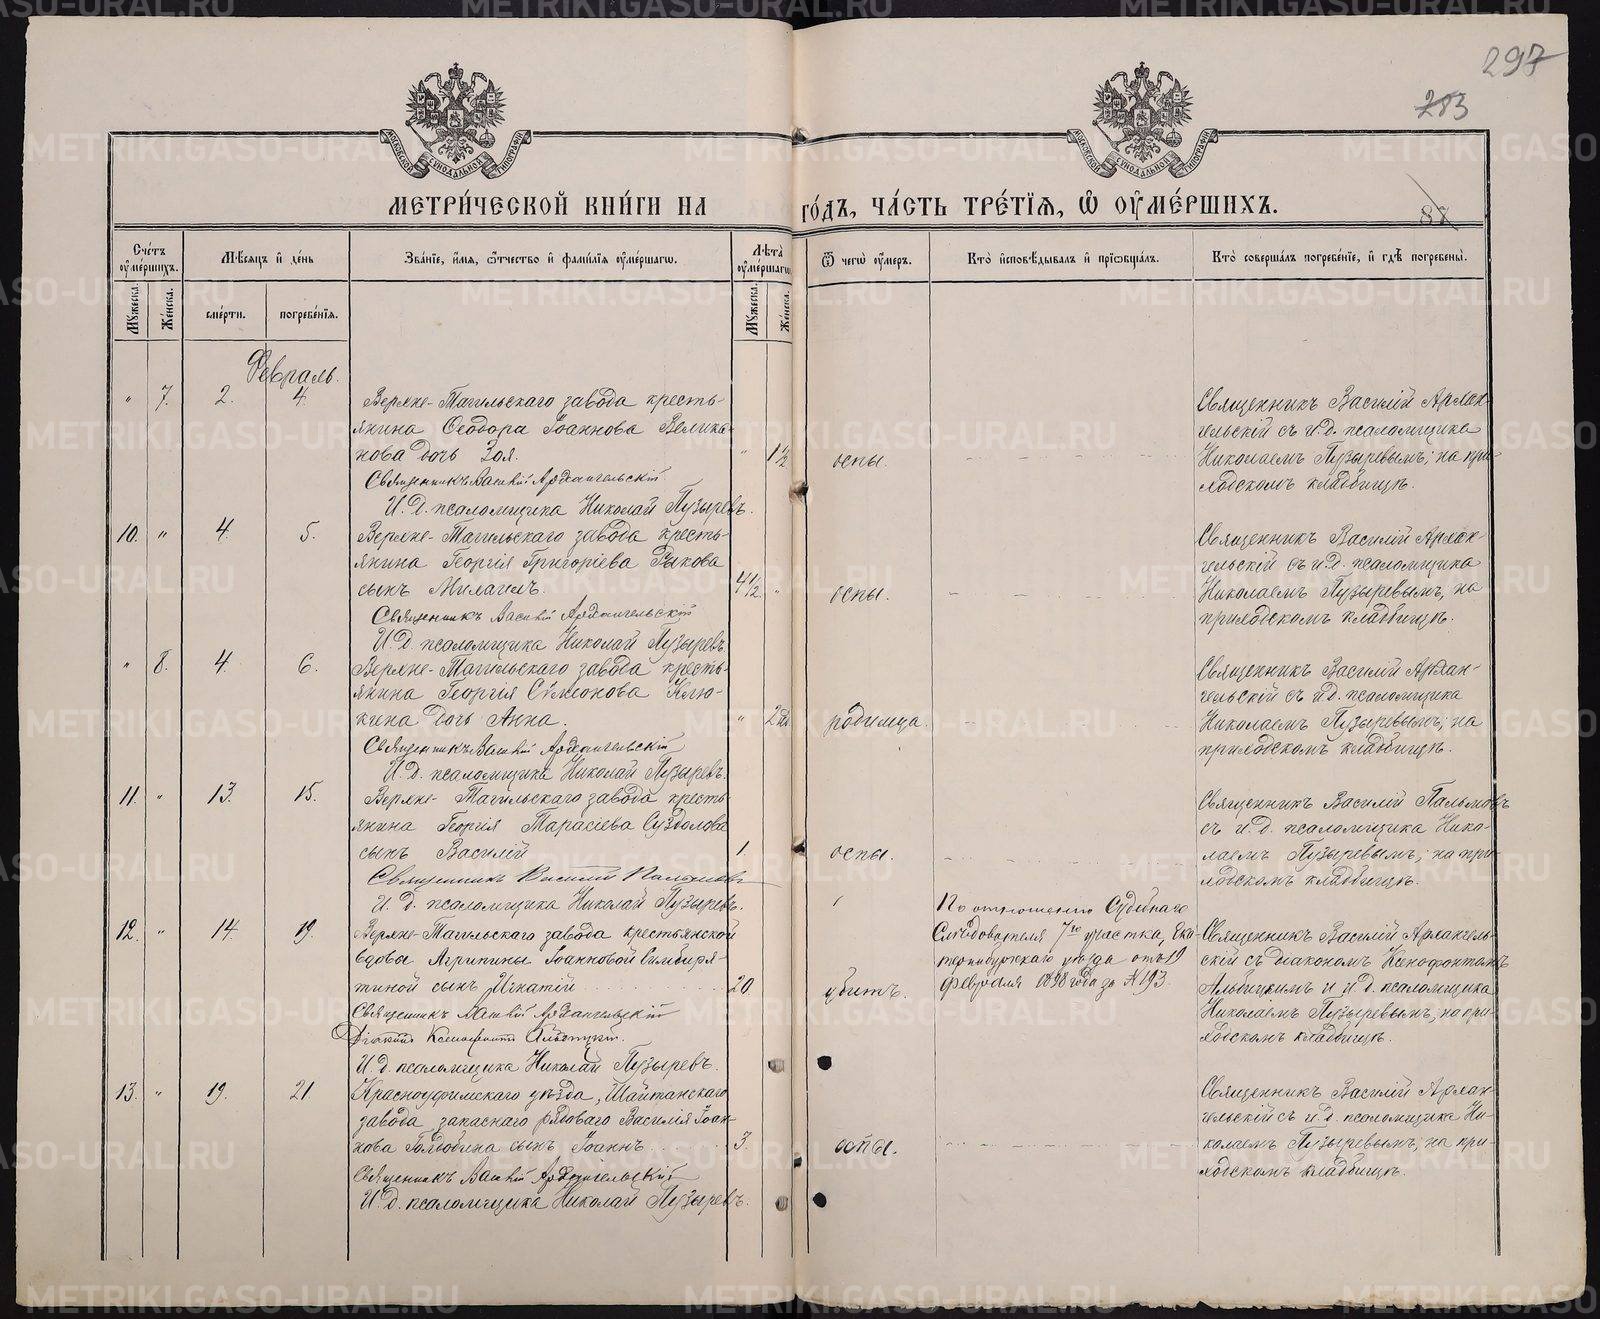 297
283
87
МОСКОВСКОЙ СѴНОДАЛЬНОЙ ТИПОГРАФІИ
МОСКОВСКОЙ СѴНОДАЛЬНОЙ ТИПОГРАФІИ
МЕТРИ́ЧЕСКОЙ КНИ́ГИ НА ГО́ДЪ, ЧА́СТЬ ТРЕ́ТІѦ, Ѡ҆ ОУ҆МЕ́РШИХЪ.
Сче́тъ оу҆ме́ршихъ.
Мѣ́сѧцъ и҆ де́нь
Зва́нїе, и҆́мѧ, ѻ҆́тчество и҆ фами́лїѧ оу҆ме́ршагѡ.
Лѣ́та оу҆ме́ршагѡ
Ѿ чегѡ̀ оу҆́меръ.
Кто̀ и҆сповѣ́дывалъ и҆ прїѡбща́лъ.
Кто̀ соверша́лъ погребе́нїе, и҆ гдѣ̀ погребены̀.
Мꙋ́жеска.
Же́нска.
сме́рти.
погребе́нїѧ.
Мꙋ́жеска.
Же́нска.
Февраль.
" 7. 2. 4. Верхне-Тагильскаго завода кресть-
янина Ѳеодора Іоаннова Велика-
нова дочь Зоя. " 1½ оспы.
Священникъ Василій Архангельскій
И.Д. псаломщика Николай Пузыревъ.
Священникъ Василій Архан-
гельскій съ и.д. псаломщика
Николаемъ Пузыревымъ; на при-
ходскомъ кладбищѣ.
10. " 4. 5. Верхне-Тагильскаго завода кресть-
янина Георгія Григоріева Рыкова
сынъ Михаилъ. 4½ " оспы.
Священникъ Василій Архангельскій
И.Д. псаломщика Николай Пузыревъ
Священникъ Василій Архан-
гельскій съ и.д. псаломщика
Николаемъ Пузыревымъ, на
приходскомъ кладбищѣ.
" 8. 4. 6. Верхне-Тагильскаго завода кресть-
янина Георгія Сѵмеонова Клю-
кина дочь Анна. " родимца.
Священникъ Василій Архангельскій
И.Д. псаломщика Николай Пузыревъ.
Священникъ Василій Архан-
гельскій съ и.д. псаломщика
Николаемъ Пузыревымъ; на
приходскомъ кладбищѣ.
11. " 13. 15. Верхне-Тагильскаго завода кресть-
янина Георгія Тарасіева Суздолова
сынъ Василій 1. оспы.
Священникъ Василій Пальмовъ
И.д. псаломщика Николай Пузыревъ.
Священникъ Василій Пальмовъ
съ и.д. псаломщика Нико-
лаемъ Пузыревымъ; на при-
ходскомъ кладбищѣ.
12. " 14. 19. Верхне-Тагильскаго завода крестьянской
вдовы Агрипины Іоанновой Симбиря-
тиной сынъ Игнатій 20. убитъ.
Священникъ Василій Архангельскій
Діаконъ Ксенофонтъ
И.д. псаломщика Николай Пузыревъ.
По отношенію Судебнаго
Слѣдователя 7го участка, Ека-
теринбургскаго уѣзда отъ 19
февраля 1898 года за № 193.
Священникъ Василій Архангель-
скій съ діакономъ Ксенофонтомъ
и и.д. псаломщика
Николаемъ Пузыревымъ, на при-
ходскомъ кладбищѣ.
13. " 19. 21. Красноуфимскаго уѣзда, Шайтанскаго
завода запаснаго рядоваго Василія Іоан-
нова сынъ Іоаннъ. 3. оспы.
Священникъ Василій Архангельскій
И.д. псаломщика Николай Пузыревъ.
Священникъ Василій Архан-
гельскій съ и.д. псаломщика Ни-
колаемъ Пузыревымъ; на при-
ходскомъ кладбищѣ.
METRIKI.GASO-URAL.RU